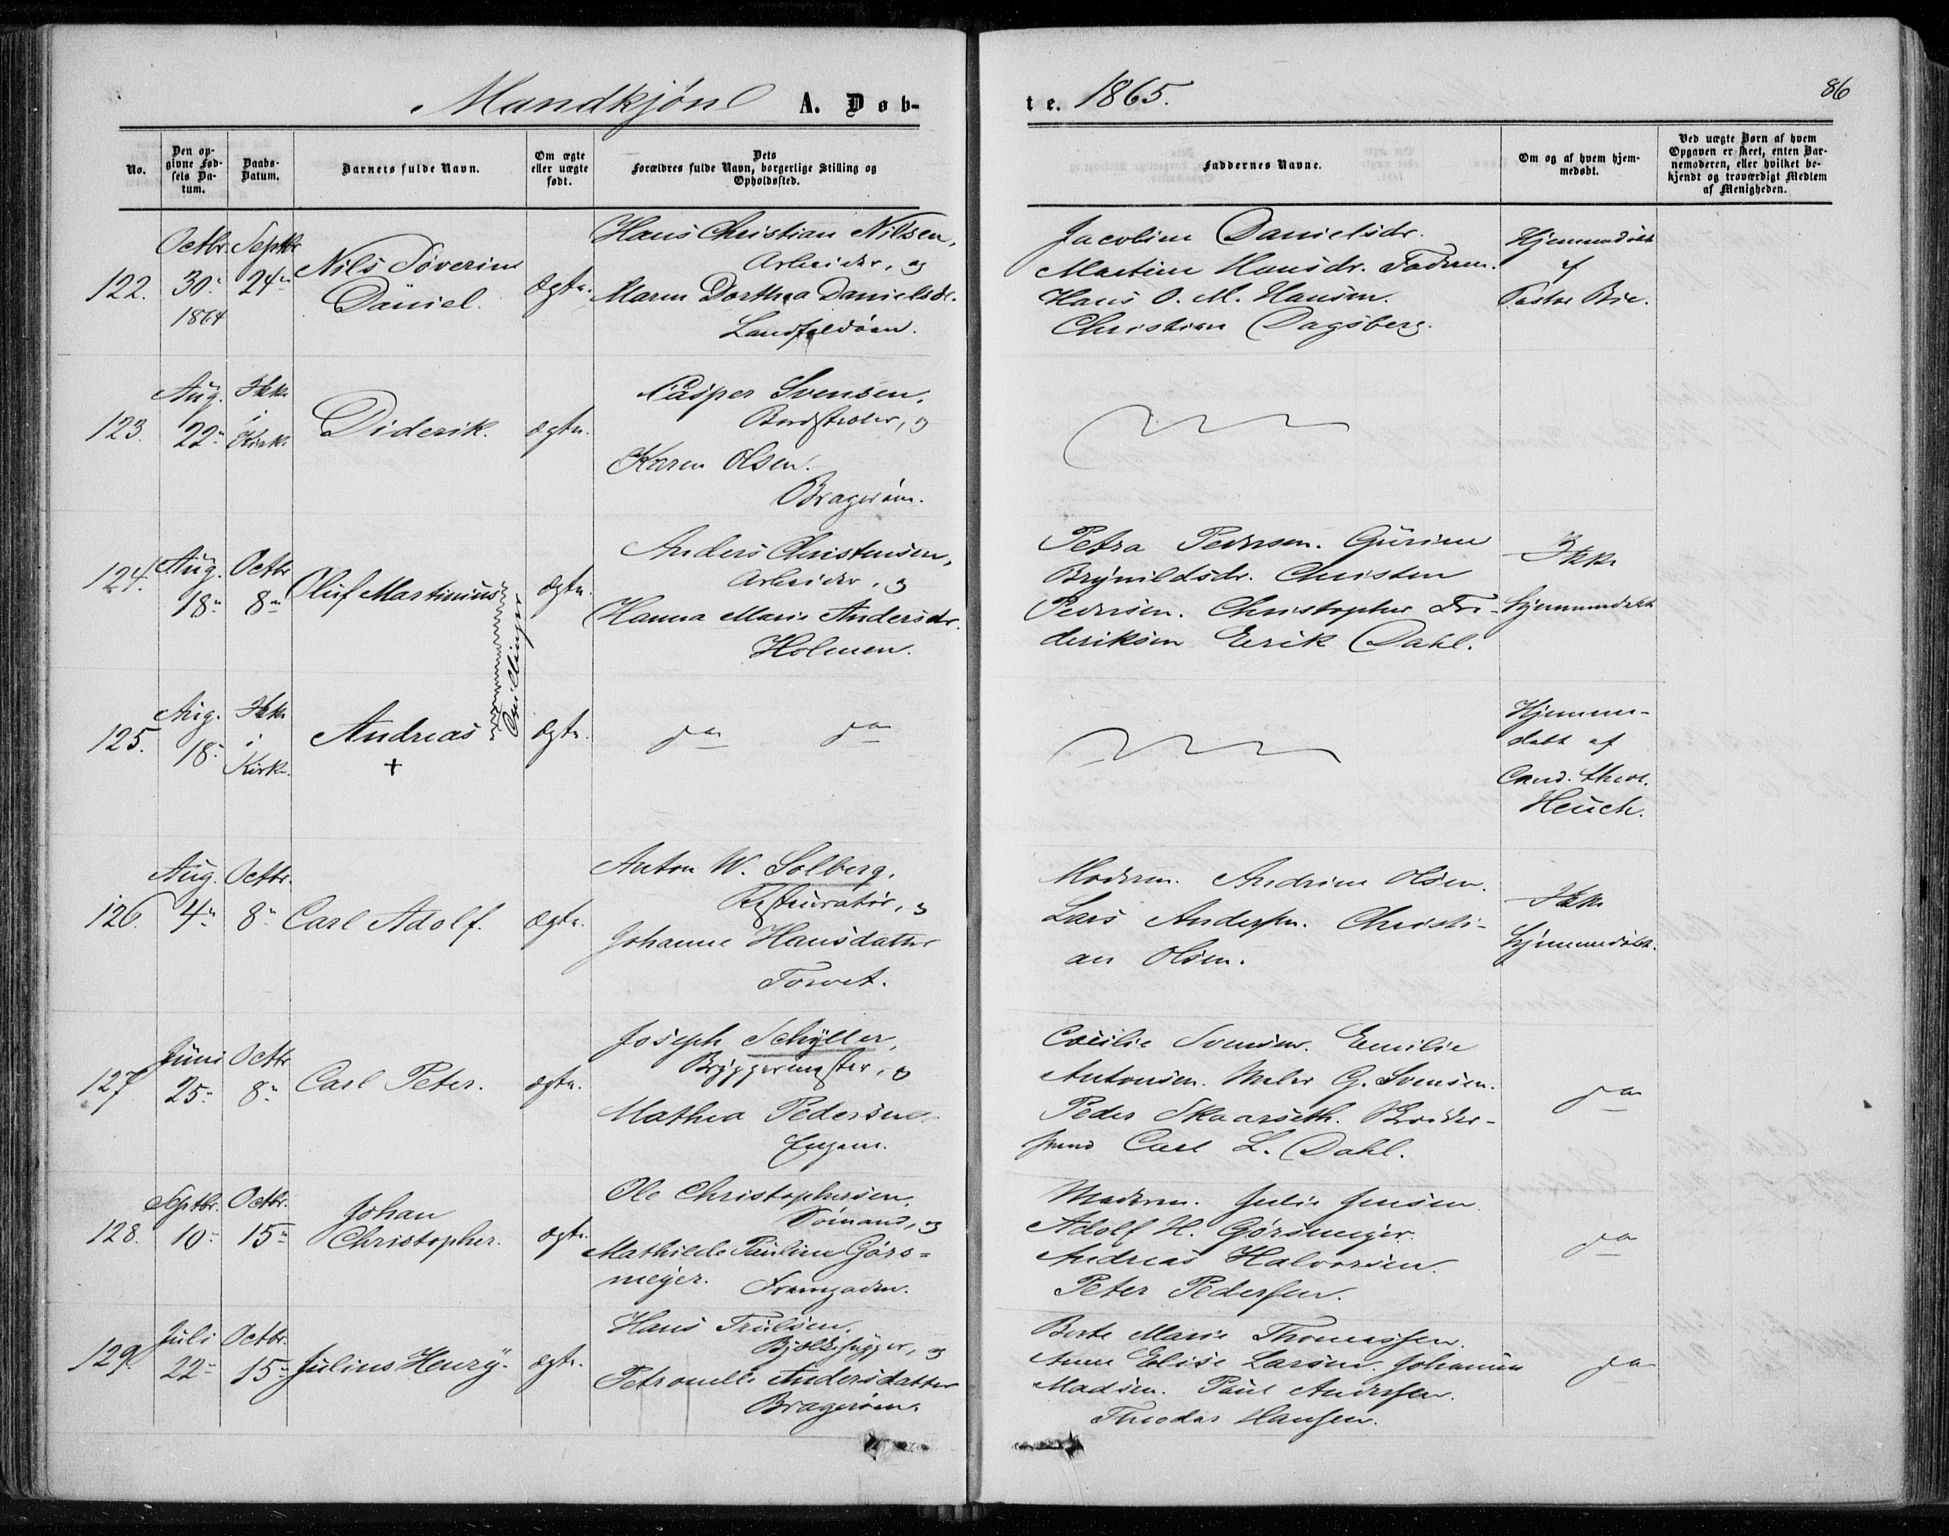 Mandkjøn A. Døb-
te. 1865.
86
No.
Den op-
givne Fød-
sels Da-
tum.
Daabs-
Datum.
Barnets fulde Navn.
Om ægte
eller uægte
født.
Dets
Forældres fulde Navn, borgerlige Stilling og
Opholdssted.
Faddernes Navne.
Om og af hvem hjem-
medøbt.
Ved uægte Børn af hvem
Opgaven er skeet, enten Bar-
nemoderen, eller hvilket be-
kjendt og troværdigt Medlem
af Menigheden.
122.
Octbr.
30
1864
Septbr
24
Nils Søverin
Daniel.
ægte.
Hans Christian Nilsen,
Arbeider, og
Maren Dorthea Danielsdr.
Landfaldøen.
Jacobine Danielsdr.
Martine Hansdr. Faderen.
Hans O. M. Hansen.
Christian Dagsberg.
Hjemmedøbt
af
Pastor Bie.
123.
Aug.
22
Ikke
i
Kirk.
Diderik.
ægte.
Casper Svensen,
Bordstabler, og
Karen Olsen.
Bragerøen.
124.
Aug.
18
Octbr
8
Oluf Martinius
Tvillinger
ægte.
Anders Christensen,
Arbeider, og
Hanna Marie Andersdr.
Holmen.
Petra Pedersen. Gurine
Brynildsdr. Christen
Pedersen. Christopher Fre-
deriksen Eerik Dahl.
Ikke
hjemmedøbt
125.
Aug.
18
Ikke
i
Kirke.
Andreas
+
ægte.
do do
Hjemme-
døbt af
Cand. theol.
Heuch.
126.
Aug.
4
Octbr.
8
Carl Adolf.
ægte.
Anton W. Solberg,
Restauratør, og
Johanne Hansdatter
Torvet.
Moderen. Andrine Olsen.
Lars Andersen. Christi-
an Olsen.
Ikke
hjemmedøbt.
127
Juni
25
Octbr
8
Carl Peter.
ægte.
Joseph Schyller,
Bryggermester, og
Mathea Pedersen.
Engene.
Cecilie Svensen. Emilie
Antonsen. Maler G. Svensen.
Peder Skaarseth.
Carl L. Dahl.
do
128.
Septbr.
10
Octbr.
15
Johan
Christopher.
ægte.
Ole Christophersen,
Sømand, og
Mathilde Pauline Görs-
meyer.
Fremgaden.
Moderen. Julie Jensen.
Adolf H. Görsmeyer.
Andreas Halvorsen.
Peter Pedersen.
do
129.
Juli
22
Octbr.
15
Julius Henry.
ægte.
Hans Trulsen,
Bjelkehugger, og
Petronelle Andersdatter
Bragerøen.
Berte Marie Thomassen.
Anne Elise Larsen. Johanna
Madsen. Paul Andersen.
Theodor Hansen.
do